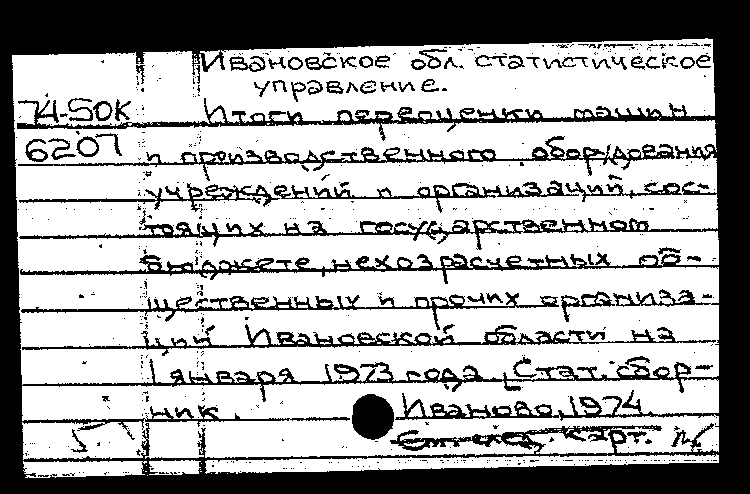 Ивановское обл. статистическое
управление.
74-50К
Итоги переоценки машин
6207
и производственного оборудования
учреждений и организаций, сос-
тоящих на государственном
бюджете, нехозрасчетных об-
щественных и прочих организа-
ций Ивановской области на
1 января 1973 года. Стат. сбор-
ник.
Иваново, 1974.
карт.